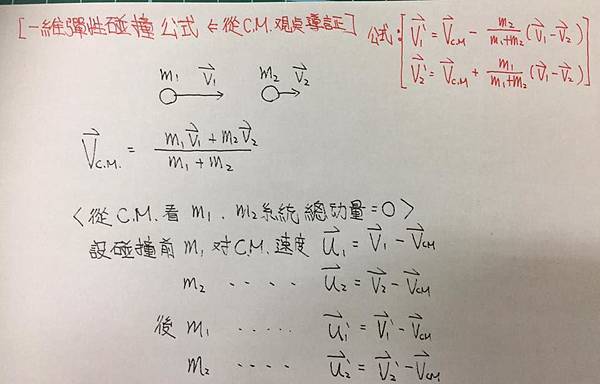 [一維彈性碰撞公式 ⇐ 從C.M.觀点導証]
公式: V₁' = V_C.M. - m₂/(m₁+m₂) (V₁ - V₂)
V₂' = V_C.M. + m₁/(m₁+m₂) (V₁ - V₂)
m₁ V₁ m₂ V₂
V_C.M. = (m₁V₁ + m₂V₂)/(m₁ + m₂)
〈從C.M.看 m₁、m₂系統總动量=0〉
設碰撞前 m₁ 对C.M.速度 U₁ = V₁ - V_CM
m₂ ‥‥ U₂ = V₂ - V_CM
後 m₁ ‥‥‥ U₁' = V₁' - V_CM
m₂ ‥‥ U₂' = V₂' - V_CM